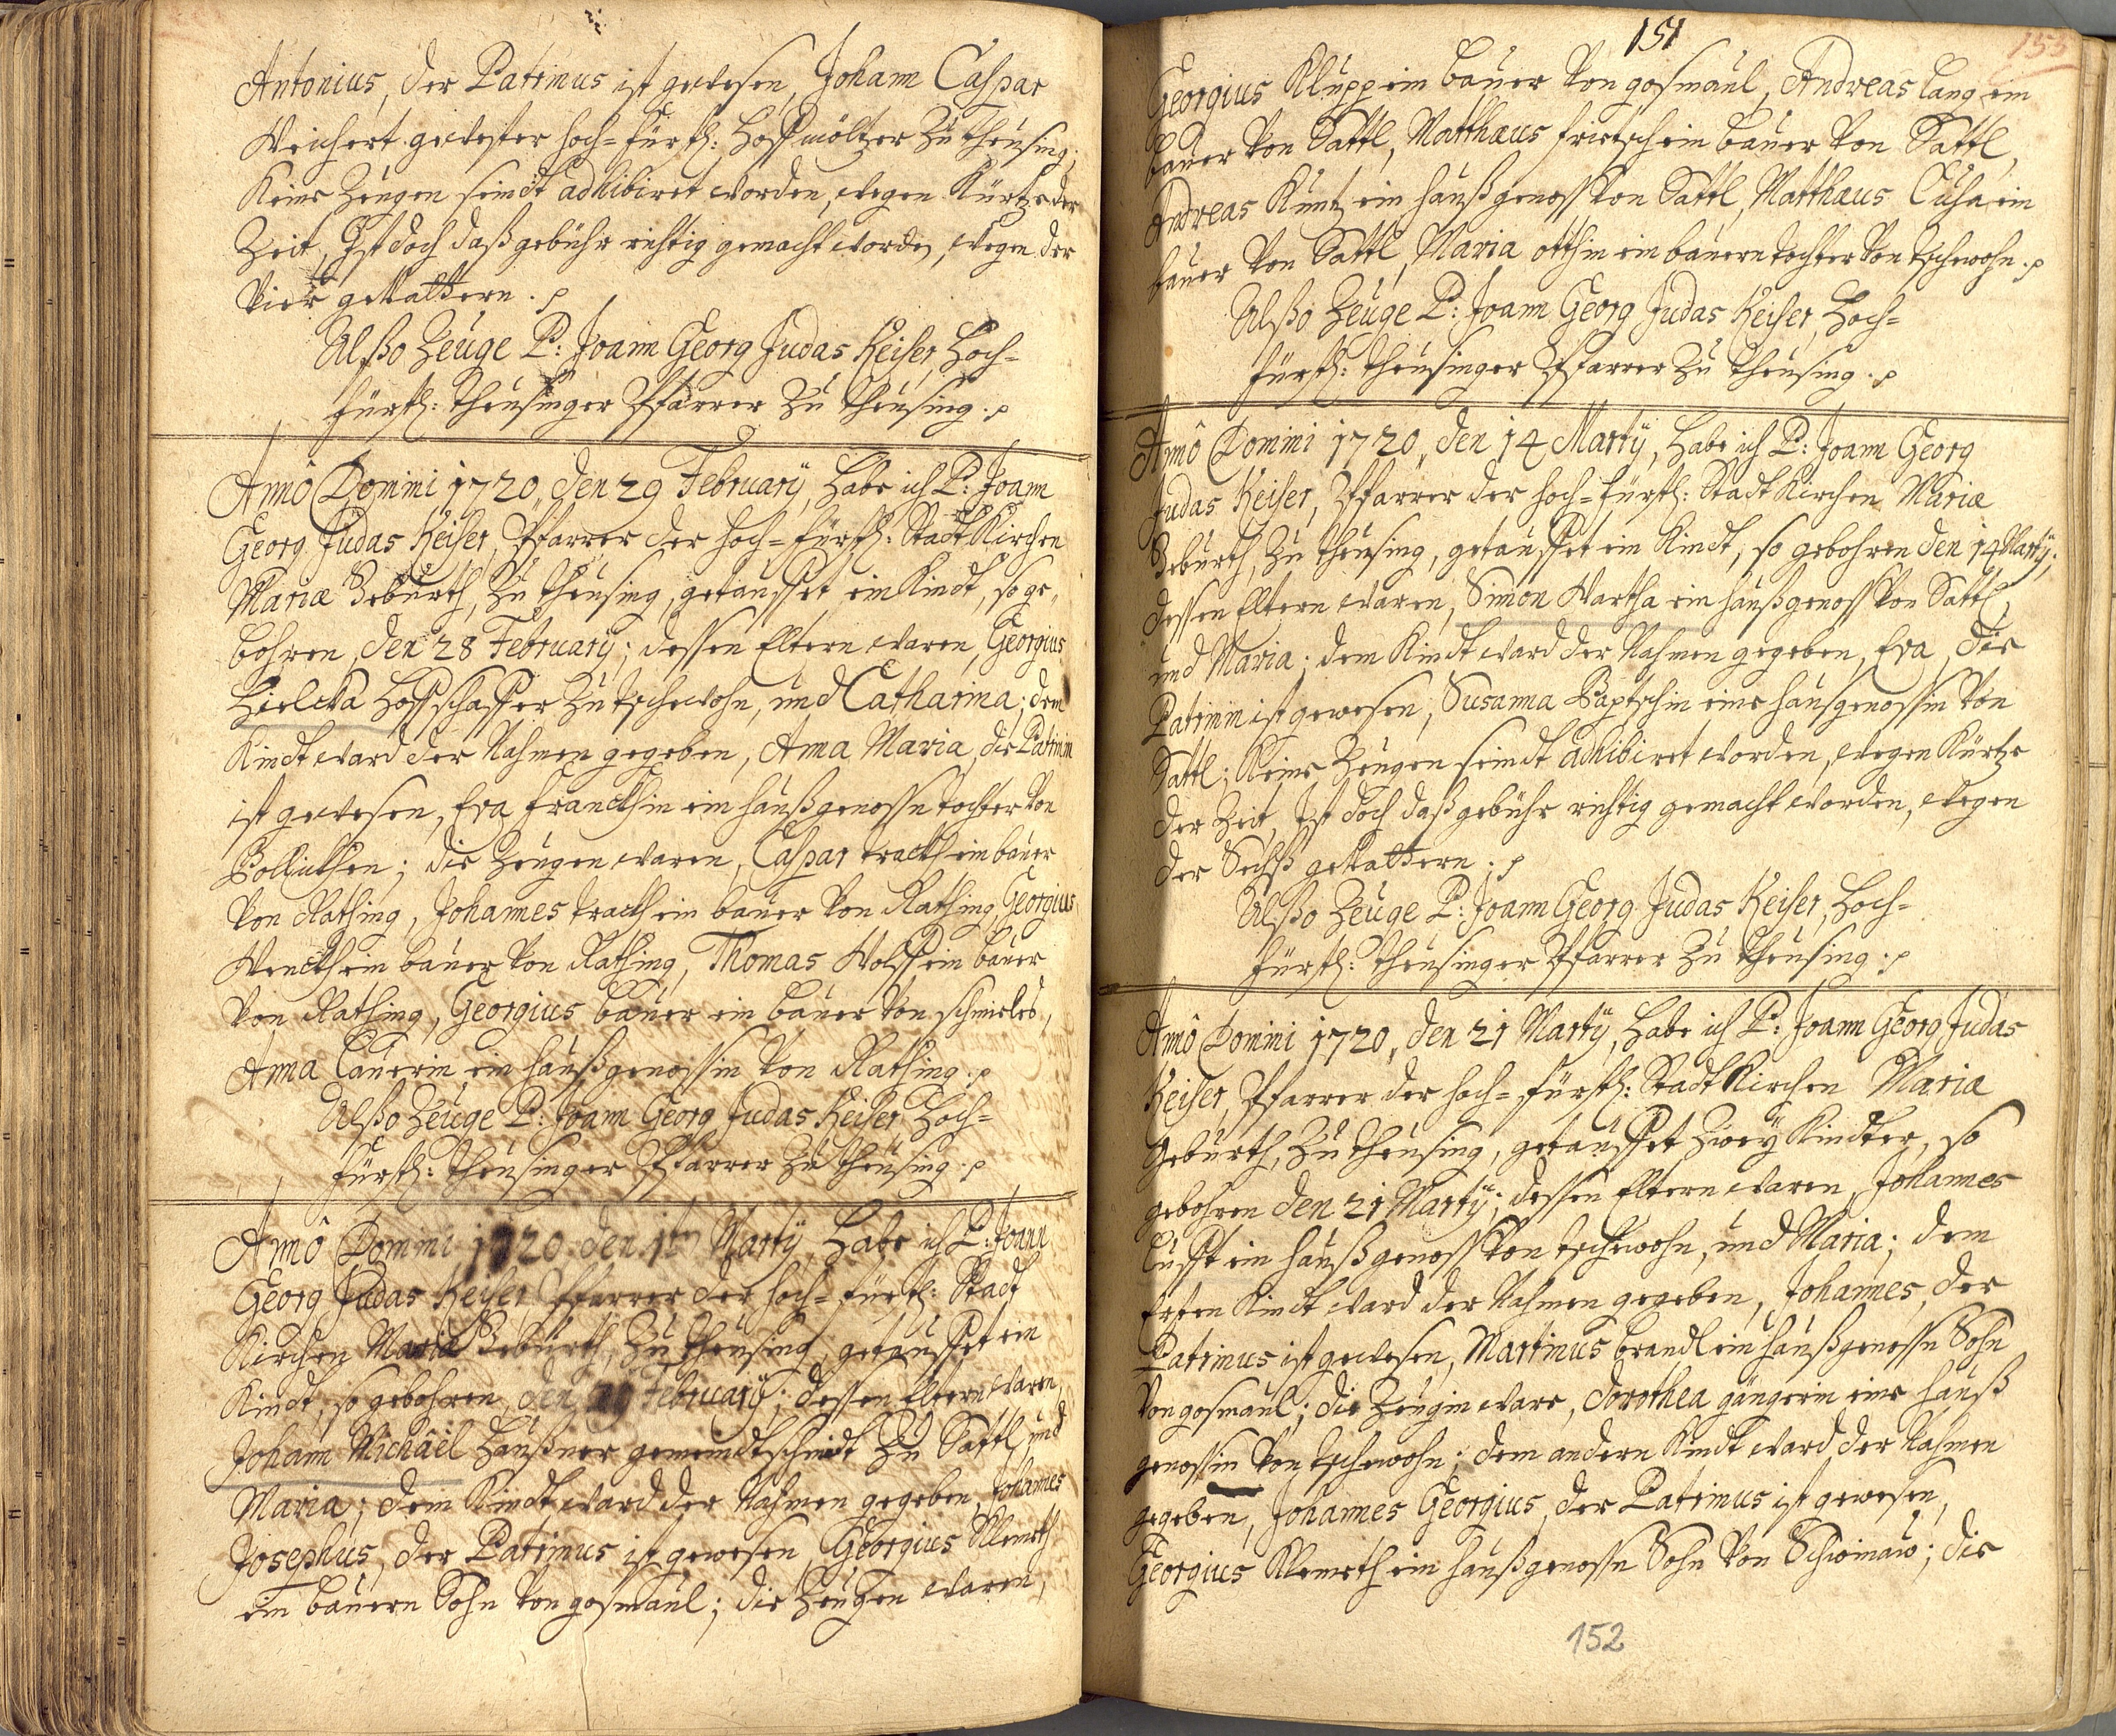 Antonius, der Patrinus ist gewesen, Johann Caspar
Weichert gewester hoch=fürstl: Hoffmöltzer zu Theusing;
Keine Zeugen seindt adhibiret worden, wegen Kürtze der
Zeit, Ist doch daß gebühr richtig gemacht worden, wegen der
Vier gevattern. p
Alßo Zeuge P: Joann Georg Judas Keiser, Hoch=
fürstl: Theusinger Pfarrer zu Theusing. p
Annô Domini 1720, den 29 February, Habe ich P: Joann
Georg Judas Keiser, Pfarrer der hoch=fürstl: Stadt Kirchen
Mariæ Geburth, zu Theusing, getauffet ein Kindt, so ge=
bohren, den 28 February; dessen Eltern waren, Georgius
Hoffschaffer zu Tschewohn, und Catharina; dem
Kindt ward der Nahmen gegeben, Anna Maria, die Patrinin
ist gewesen, Eva Franckhin ein haußgenossn tochter von
die Zeugen waren, Caspar trackh ein bauer
von Rathing, Johannes trackh ein bauer von Rathing, Georgius
Wenckh ein bauer von Rathing, Thomas Wolff ein bauer
von Rathing, Georgius bauer ein bauer von schmieles,
Anna Lauerin ein haußgenossin von Rathing. p
Alßo Zeuge P: Joann Georg Judas Keiser, Hoch=
fürstl: Theusinger Pfarrer zu Theusing. p
Annô Domini 1720, den Marty, Habe ich P: Joann
Georg Judas Keiser, Pfarrer der hoch=fürstl: Stadt
Kirchen Mariæ Geburth, zu Theusing, getauffet ein
Kindt, so gebohren, den 29 February; dessen Eltern waren,
Johann Michäel Haußner gemeindtschmidt zu Sattl, und
Maria; dem Kindt ward der Nahmen gegeben, Johannes
Josephus, der Patrinus ist gewesen, Georgius Klemeth
ein bauern Sohn von gosmaul; die Zeugen waren,
151
155
Georgius Klupp ein bauer von gosmaul, Andreas Lang ein
bauer von Sattl, Matthæus frietsch ein bauer von Sattl,
Andreas Kuntz ein haußgenoss von Sattl, Matthæus Cuha ein
bauer von Sattl, Maria otthin ein bauern tochter von Tschewohn. p
Alßo Zeuge P: Joann Georg Judas Keiser, Hoch=
fürstl: Theusinger Pfarrer zu Theusing. p
Annô Domini 1720, den 14 Marty, Habe ich P: Joann Georg
Judas Keiser, Pfarrer der hoch=fürstl: Stadt Kirchen Mariæ
Geburth, zu Theusing, getauffet ein Kindt, so gebohren den 14 Marty;
dessen Eltern waren, Simon Wartha ein haußgenoss von Sattl,
und Maria; dem Kindt ward der Nahmen gegeben, Eva, die
Patrinin ist gewesen, Susanna Paptschin eine hausgenossin von
Sattl; Keine Zeugen seindt adhibiret worden, wegen Kürtze
der Zeit, Ist doch daß gebühr richtig gemacht worden, wegen
der Sechß gevattern. p
Alßo Zeuge P: Joann Georg Judas Keiser, Hoch=
fürstl: Theusinger Pfarrer zu Theusing. p
Annô Domini 1720, den 21 Marty, Habe ich P: Joann Georg Judas
Keiser, Pfarrer der hoch=fürstl: Stadt Kirchen Mariæ
Geburth, zu Theusing, getauffet zwey Kindter, so
gebohren den 21 Marty; dessen Eltern waren, Johannes
Lufft ein haußgenoss von Tschewohn, und Maria; dem
Ersten Kindt ward der Nahmen gegeben, Johannes, der
Patrinus ist gewesen, Martinus brandl ein haußgenossn Sohn
von gosmaul; die Zeugin ware, Dorothea gängerin eine hauß
genossin von Tschewohn; dem andern Kindt ward der Nahmen
gegeben, Johannes Georgius, der Patrinus ist gewesen,
Georgius Klemeth ein haußgenossn Sohn von Schwinaw; die
152